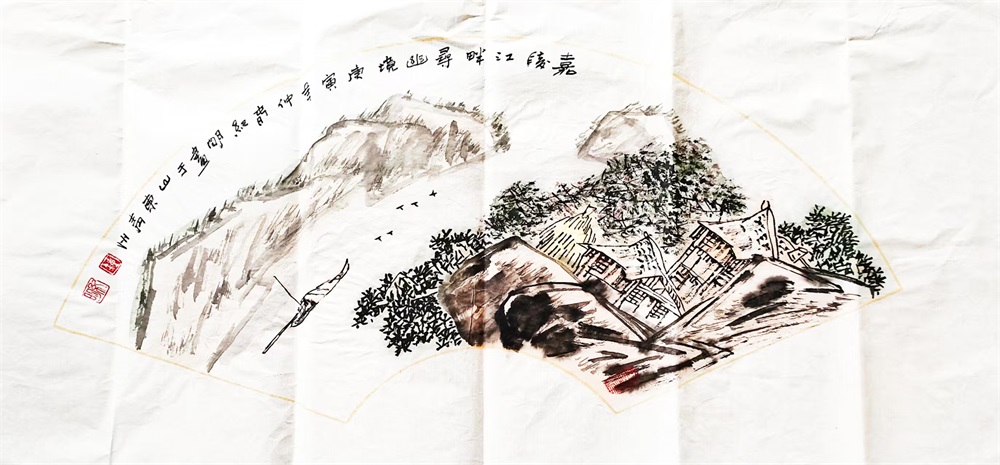 嘉陵江畔尋幽境庚寅年仲宵紀明畫于山東青島